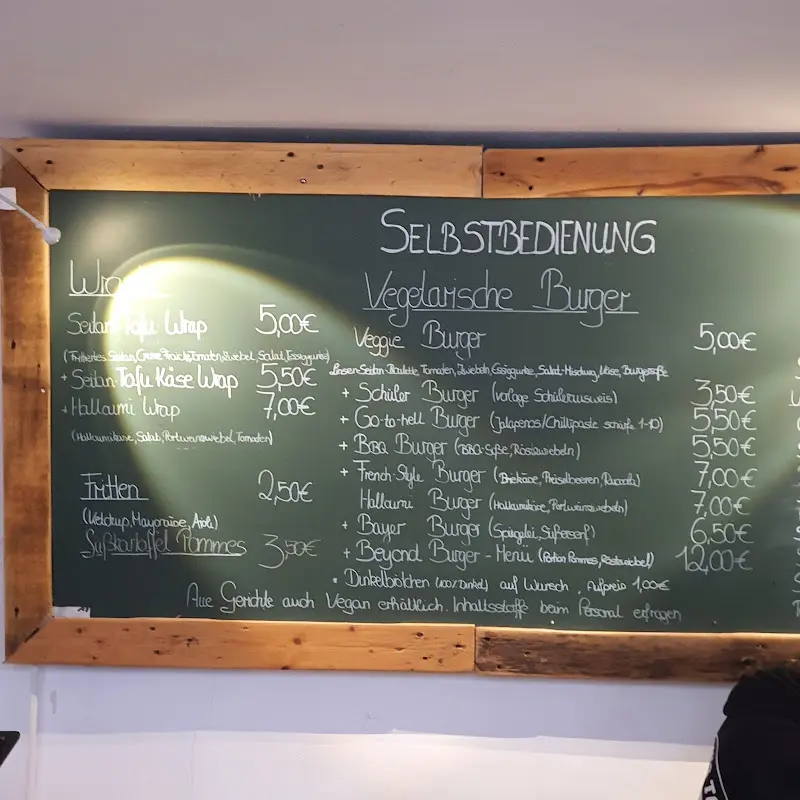 SELBSTBEDIENUNG
Wraps
Seitan-Tofu Wrap 5,00€
(Frittiertes Seitan, Creme Fraiche, Tomaten, Zwiebel, Salat, Essiggurke)
+ Seitan-Tofu Käse Wrap 5,50€
+ Halloumi Wrap 7,00€
(Halloumikäse, Salat, Portweinzwiebel, Tomaten)
Fritten 2,50€
(Ketchup, Mayonaise, Aioli)
Süßkartoffel Pommes 3,50€
Vegetarische Burger
Veggie Burger 5,00€
Linsen-Seitan-Boulette, Tomaten, Zwiebeln, Essiggurke, Salat-Mischung, Käse, Burgersoße
+ Schüler Burger (vorlage Schülerausweis) 3,50€
+ Go-to-hell Burger (Jalapenos/Chillipaste schärfe 1-10) 5,50€
+ BBQ Burger (BBQ-Soße, Röstzwiebeln) 5,50€
+ French-Style Burger (Briekäse, Preiselbeeren, Rucola) 7,00€
Halloumi Burger (Halloumikäse, Portweinzwiebeln) 7,00€
+ Bayer Burger (Spiegelei, Süßersenf) 6,50€
+ Beyond Burger - Menü (Portion Pommes, Röstzwiebel) 12,00€
• Dinkelbrötchen (100% Dinkel) auf Wunsch, Aufpreis 1,00€
Alle Gerichte auch Vegan erhältlich. Inhaltsstoffe beim Personal erfragen